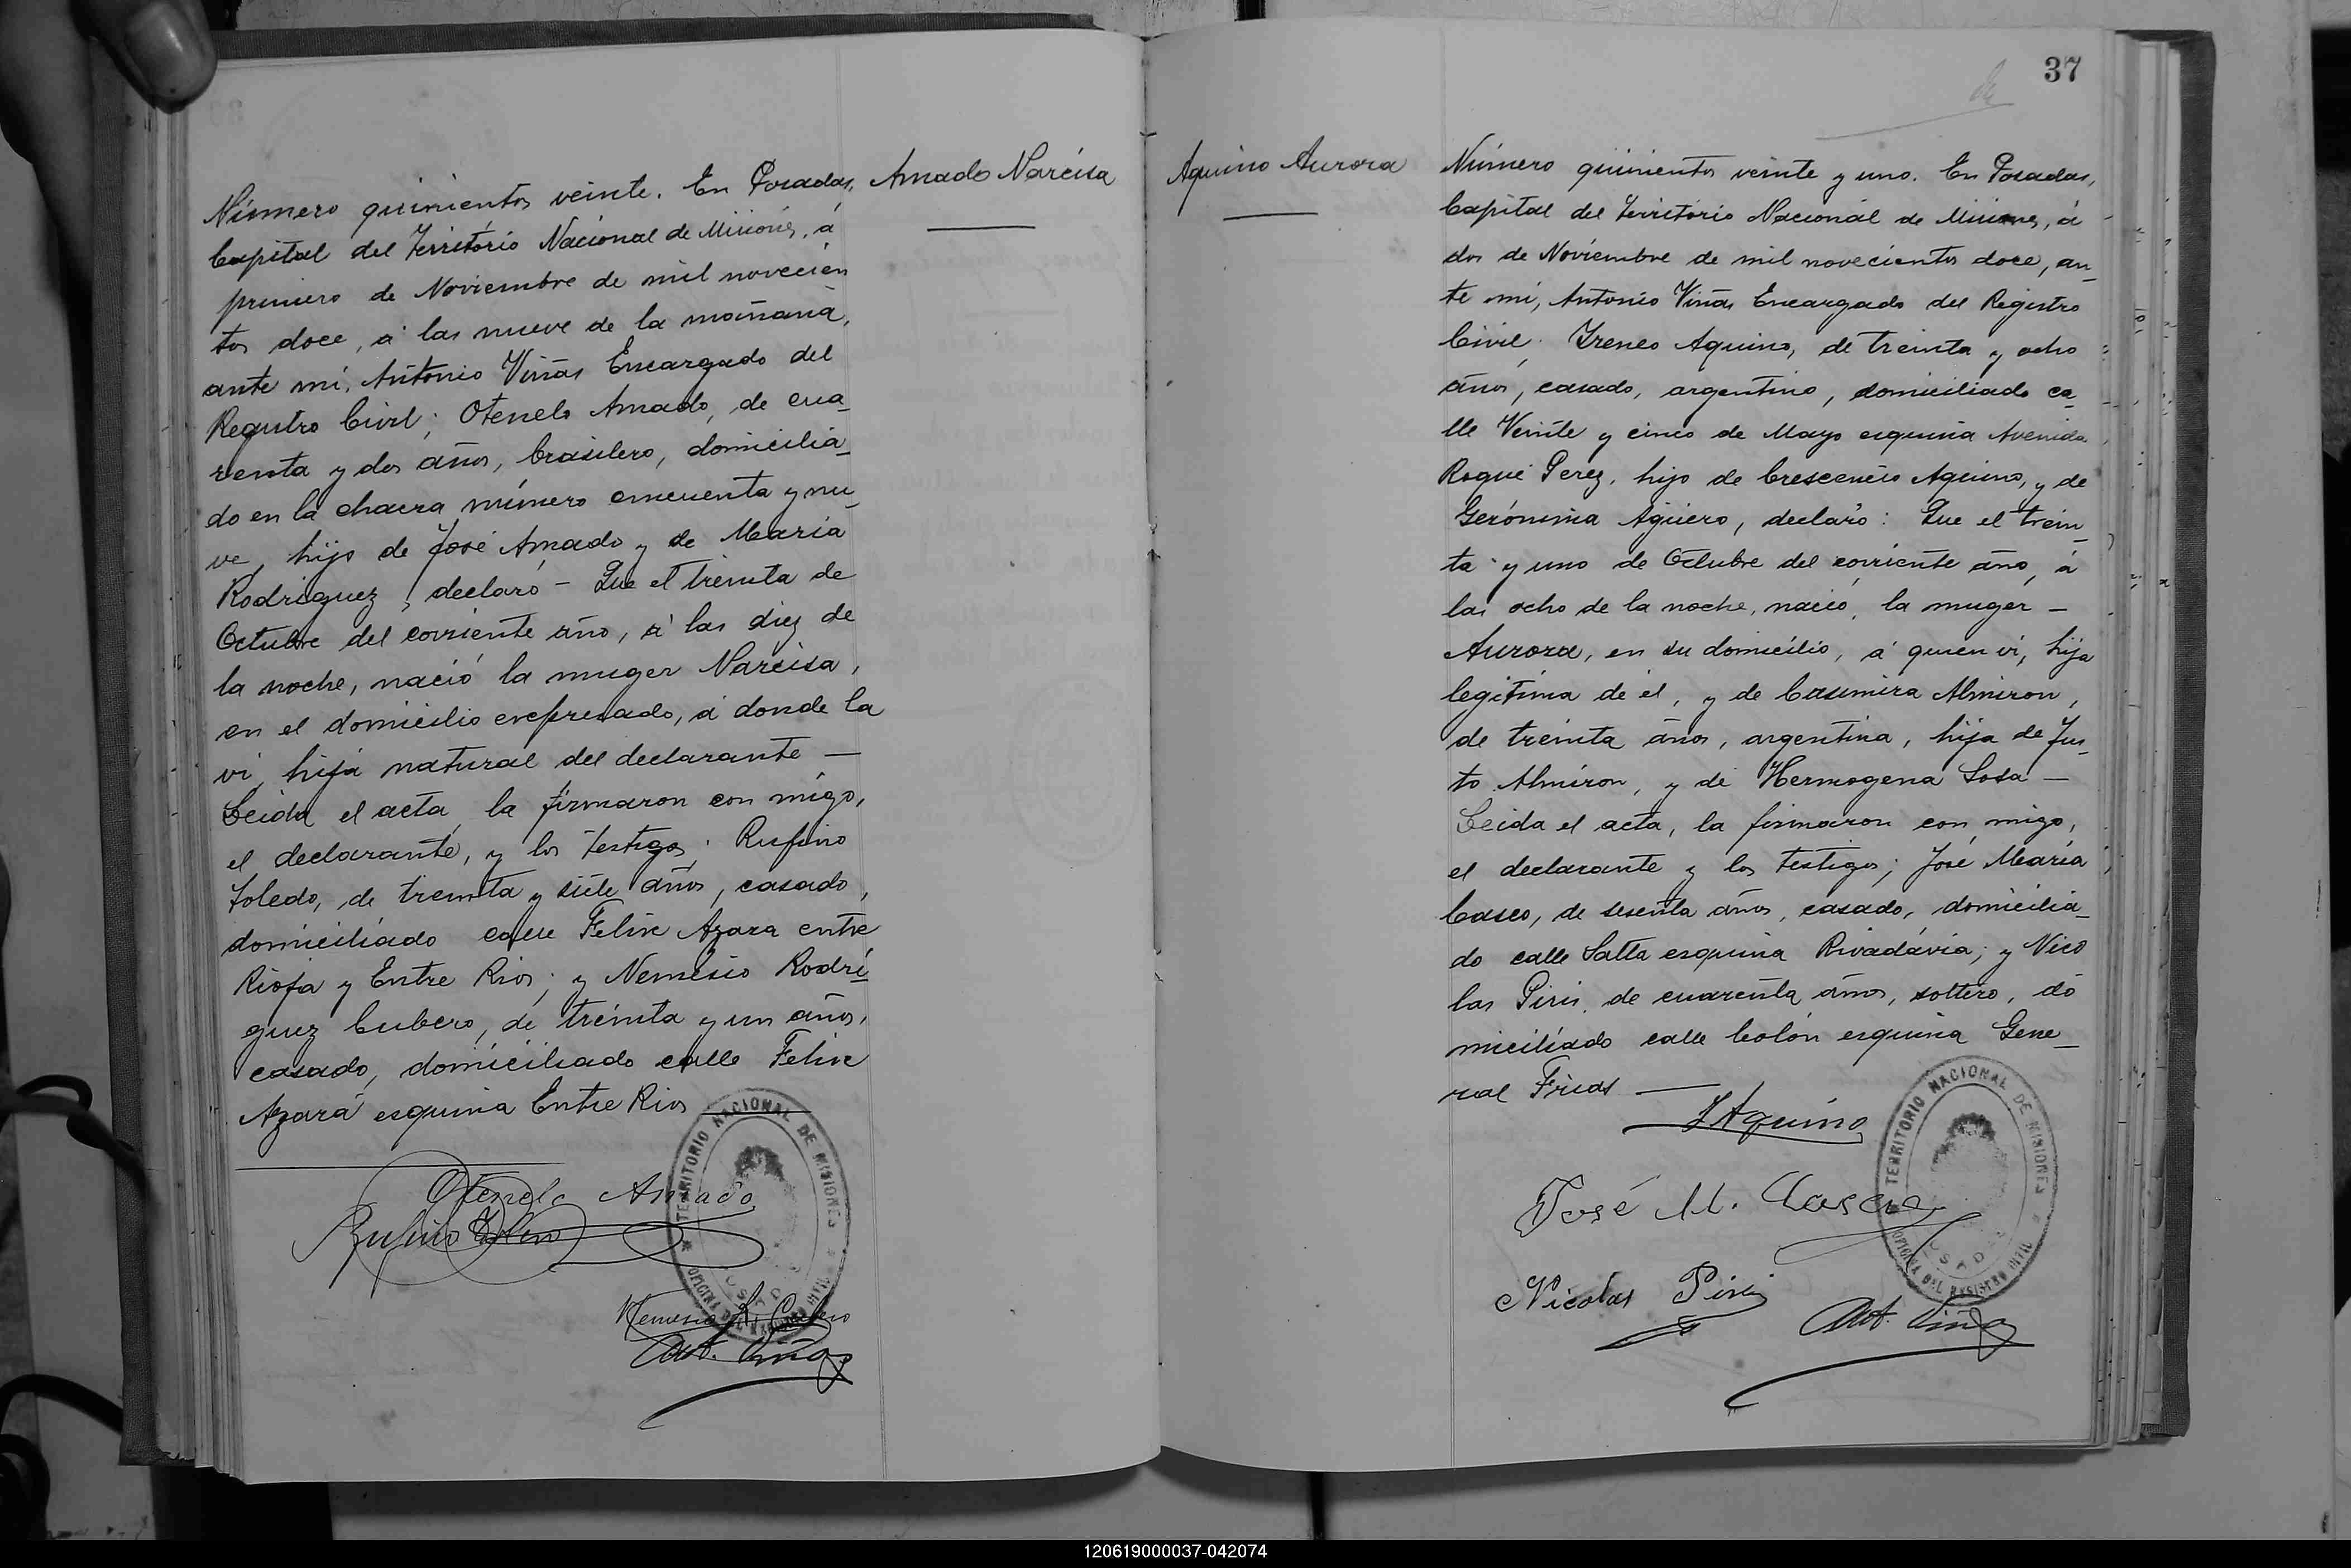 Amado Narcisa
Número quinientos veinte. En Posadas,
Capital del Territorio Nacional de Misiones, á
primero de Noviembre de mil novecien
tos doce, á las nueve de la mañana,
ante mí, Antonio Viñas Encargado del
Registro Civil; Otenelo Amado, de cua_
renta y dos años, brasilero, domicilia_
do en la chacra número cincuenta y nu_
ve, hijo de José Amado y de María
Rodriguez, declaró - Que el treinta de
Octubre del corriente año, á las diez de
la noche, nació la muger Narcisa,
en el domicilio expresado, á donde la
vi, hija natural del declarante —
Leida el acta, la firmaron con migo,
el declarante, y los testigos; Rufino
Toledo, de treinta y siete años, casado,
domiciliado calle Felix Azara entre
Rioja y Entre Rios; y Nemesio Rodri_
guez Cubero, de treinta y un años,
casado, domiciliado calle Felix
Azara esquina Entre Rios —
Otenelo Amado
Rufino Toledo
Nemesio R. Cubero
Ant. Viñas
TERRITORIO NACIONAL DE MISIONES
OFICINA DEL REGISTRO CIVIL
37
Aquino Aurora
Número quinientos veinte y uno. En Posadas,
Capital del Territorio Nacional de Misiones, á
dos de Noviembre de mil novecientos doce, an_
te mí, Antonio Viñas Encargado del Registro
Civil; Ireneo Aquino, de treinta y ocho
años, casado, argentino, domiciliado ca_
lle Veinte y cinco de Mayo esquina Avenida
Roque Perez, hijo de Crescencio Aquino, y de
Gerónima Agüero, declaró: Que el trein_
ta y uno de Octubre del corriente año, á
las ocho de la noche, nació, la muger —
Aurora, en su domicilio, á quien vi, hija
legitima de el, y de Casimira Almiron,
de treinta años, argentina, hija de Jus_
to Almiron, y de Hermogena Sosa —
Leida el acta, la firmaron con migo,
el declarante y los testigos; José María
Casco, de sesenta años, casado, domicilia_
do calle Salta esquina Rivadavia; y Nico
las Piris, de cuarenta años, soltero, do
miciliado calle Colón esquina Gene_
ral Frias —
I Aquino
José M. Casco
Nicolas Piris
Ant. Viñas
TERRITORIO NACIONAL DE MISIONES
OFICINA DEL REGISTRO CIVIL
120619000037-042074